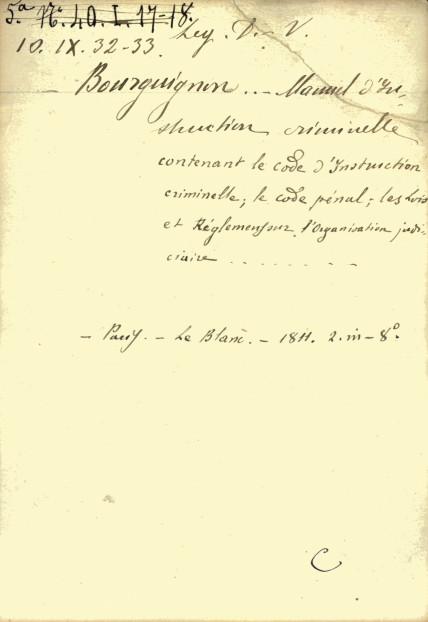 5.ª Nº. 40. I. 17-18.
10. IX. 32-33. Leg. V. - V.
- Bourguignon .. - Manuel d'In-
struction criminelle
contenant le code d'Instruction
criminelle; le code pénal; les Lois
et Réglemens sur l'Organisation judi-
ciaire . . . . . . . . .
- Paris. - Le Blanc. - 1811. 2. in - 8º.
C